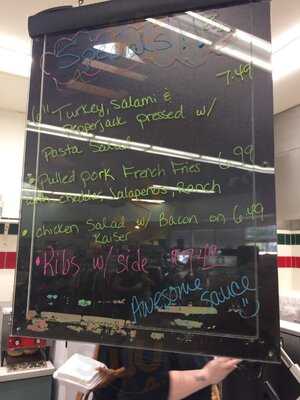 Specials!!
6" Turkey, Salami & 7.49
Pepperjack pressed w/
Pasta Salad
• Pulled pork French Fries 6.99
with cheddar, Jalapeños, Ranch
• chicken Salad w/ Bacon on 6.49
Kaiser
• Ribs w/ side $7.49
Awesome
sauce